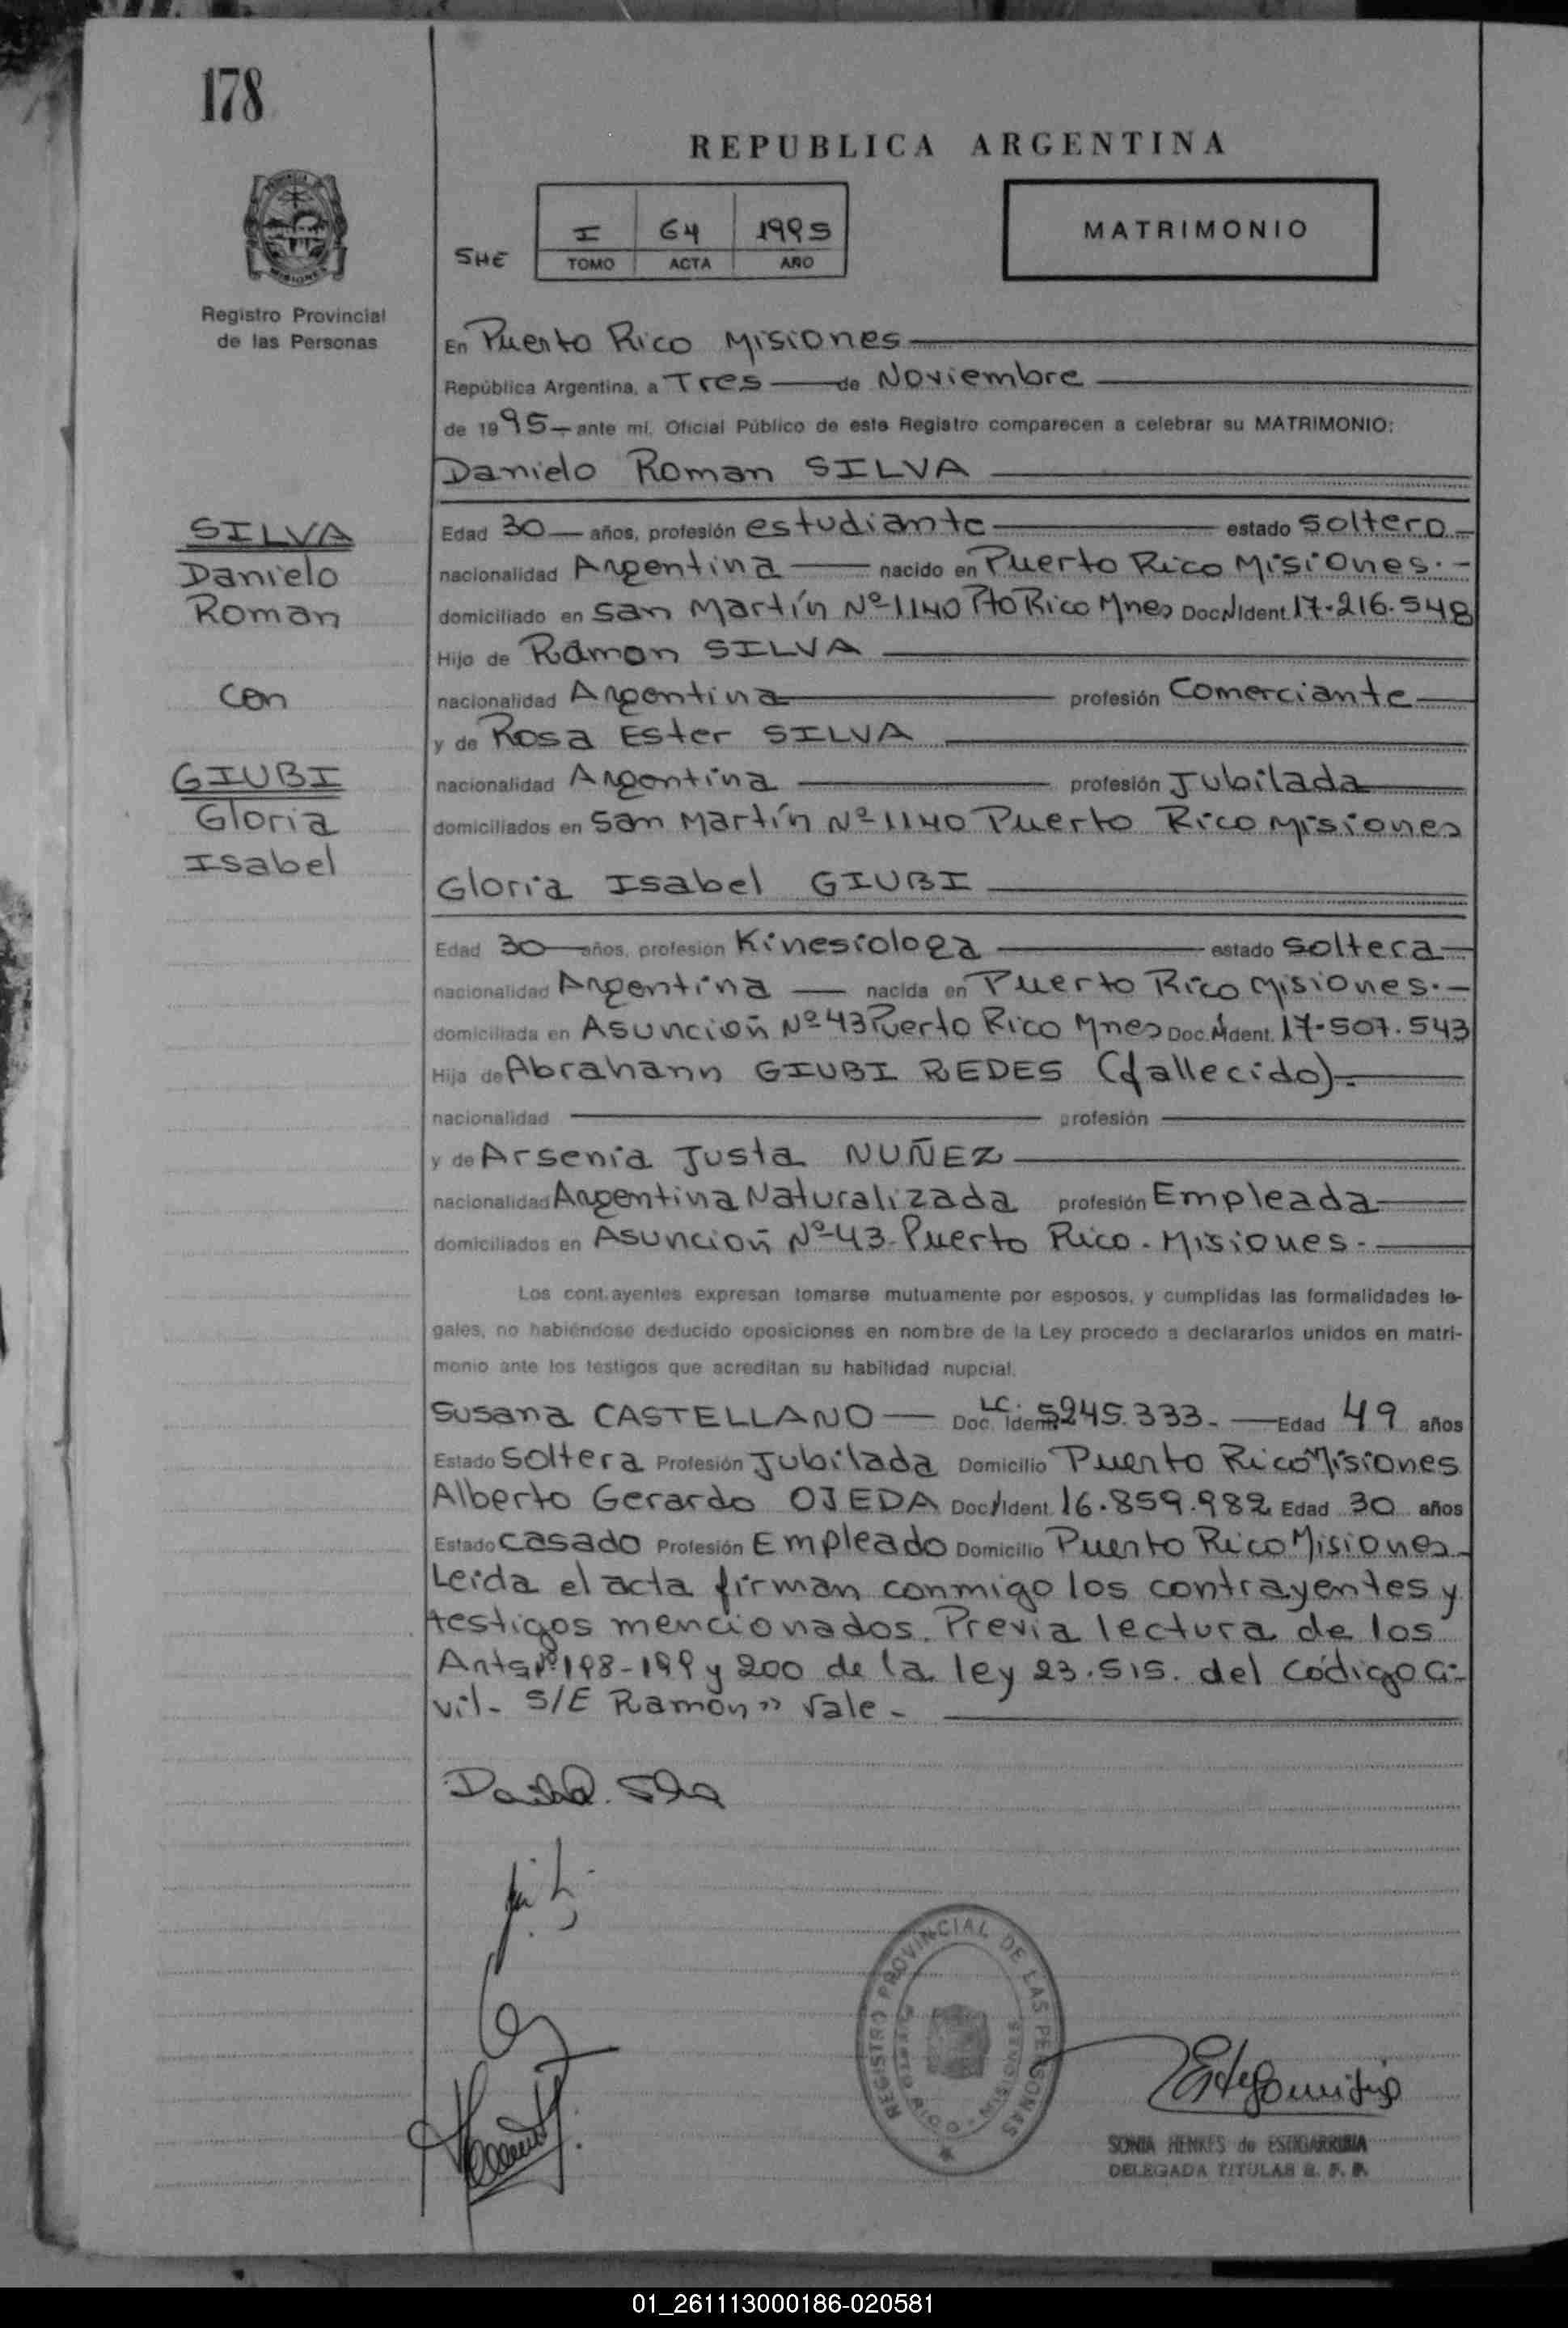 178
REPUBLICA ARGENTINA
SHE
I 64 1995
TOMO ACTA AÑO
MATRIMONIO
MISIONES
Registro Provincial
de las Personas
En Puerto Rico Misiones
República Argentina, a Tres de Noviembre
de 1995 ante mí, Oficial Público de este Registro comparecen a celebrar su MATRIMONIO:
Danielo Roman SILVA
SILVA
Danielo
Roman
con
GIUBI
Gloria
Isabel
Edad 30 años, profesión estudiante estado soltero
nacionalidad Argentina nacido en Puerto Rico Misiones.-
domiciliado en San Martín Nº 1140 Pto Rico Mnes Doc.N Ident. 17.216.548
Hijo de Ramon SILVA
nacionalidad Argentina profesión Comerciante
y de Rosa Ester SILVA
nacionalidad Argentina profesión Jubilada
domiciliados en San Martín Nº 1140 Puerto Rico Misiones
Gloria Isabel GIUBI
Edad 30 años, profesión Kinesiologa estado soltera
nacionalidad Argentina nacida en Puerto Rico Misiones.-
domiciliada en Asunción Nº 43 Puerto Rico Mnes Doc.N Ident. 17.507.543
Hija de Abrahann GIUBI REDES (fallecido).
nacionalidad profesión
y de Arsenia Justa NUÑEZ
nacionalidad Argentina Naturalizada profesión Empleada
domiciliados en Asunción Nº 43 - Puerto Rico - Misiones -
Los contrayentes expresan tomarse mutuamente por esposos, y cumplidas las formalidades le-
gales, no habiéndose deducido oposiciones en nombre de la Ley procedo a declararlos unidos en matri-
monio ante los testigos que acreditan su habilidad nupcial.
Susana CASTELLANO Doc. Ident. LC. 5245.333.- Edad 49 años
Estado Soltera Profesión Jubilada Domicilio Puerto Rico Misiones
Alberto Gerardo OJEDA Doc. Ident. 16.859.982 Edad 30 años
Estado casado Profesión Empleado Domicilio Puerto Rico Misiones
Leida el acta firman conmigo los contrayentes y
testigos mencionados. Previa lectura de los
Arts. Nº 198-199 y 200 de la ley 23.515. del Código Ci-
vil- S/E Ramón" Vale -
REGISTRO PROVINCIAL DE LAS PERSONAS
PUERTO RICO - MISIONES
SONIA HENKES de ESTIGARRIBIA
DELEGADA TITULAR R. P. P.
01_261113000186-020581